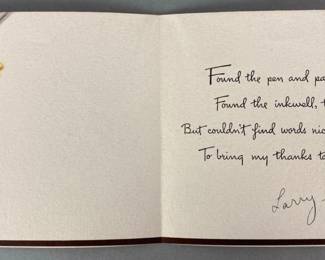 Found the pen and
Found the inkwell,
But couldn't find words
To bring my thanks
Larry